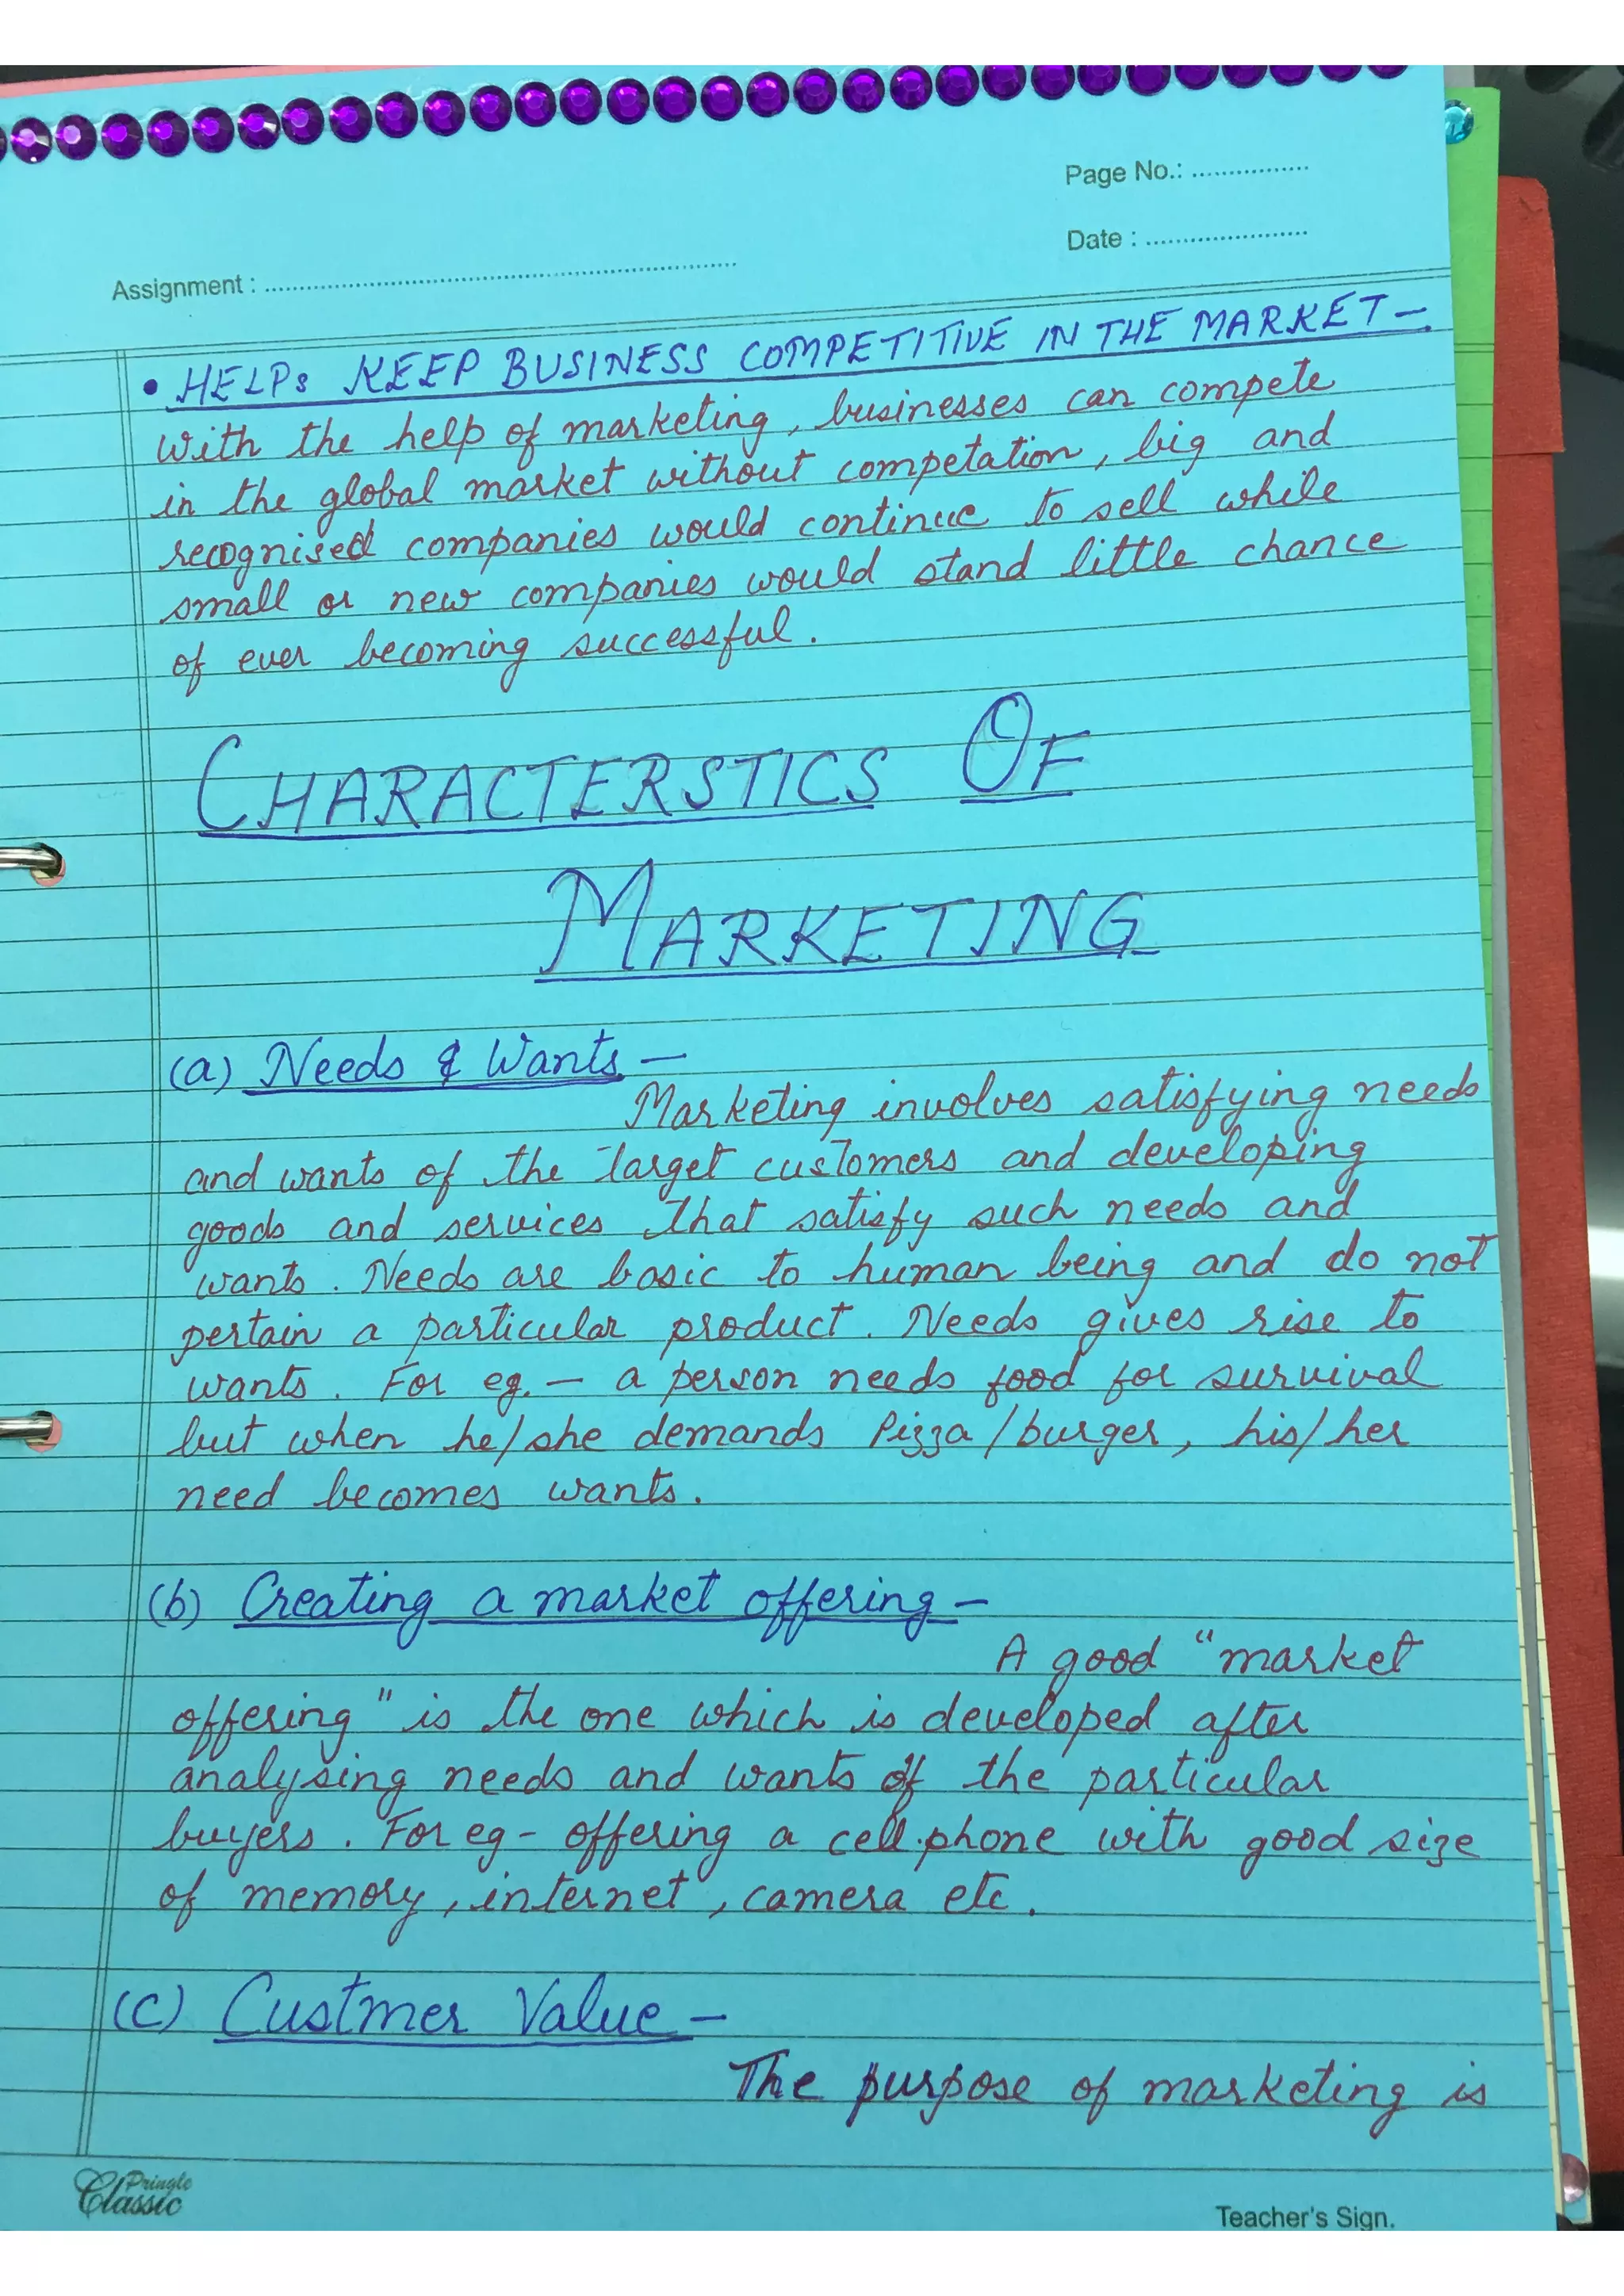 Page No.: ................
Date : ......................
Assignment : ................................................................
• HELPs KEEP BUSINESS COMPETITIVE IN THE MARKET –
with the help of marketing, businesses can compete
in the global market without competation, big and
recognised companies would continue to sell while
small or new companies would stand little chance
of ever becoming successful.
CHARACTERSTICS OF
MARKETING
(a) Needs & Wants –
Marketing involves satisfying needs
and wants of the target customers and developing
goods and services that satisfy such needs and
wants. Needs are basic to human being and do not
pertain a particular product. Needs gives rise to
wants. For eg. – a person needs food for survival
but when he/she demands Pizza/burger, his/her
need becomes wants.
(b) Creating a market offering –
A good "market
offering" is the one which is developed after
analysing needs and wants of the particular
buyers. For eg - offering a cell.phone with good size
of memory, internet, camera etc.
(c) Custmer Value –
The purpose of marketing is
Pringle
Classic
Teacher's Sign.